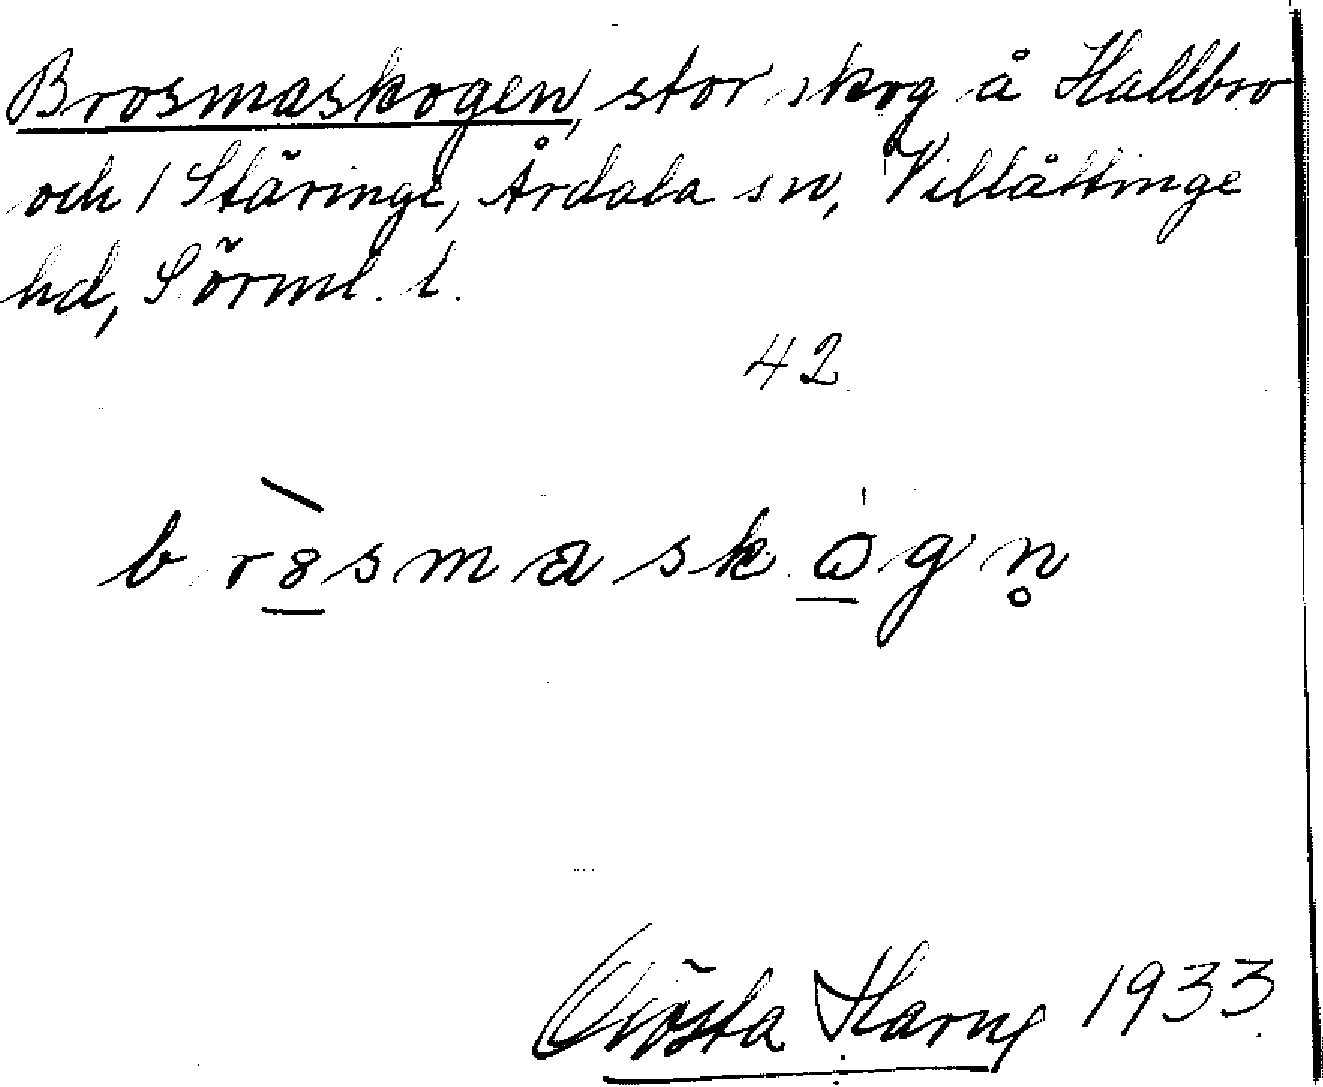 Brosmaskogen, stor skog å Hallbro
och / Stäringe, Årdala sn, Villåttinge
hd, Sörml. l.
42
br8smaskogn̥
Gösta Harng 1933